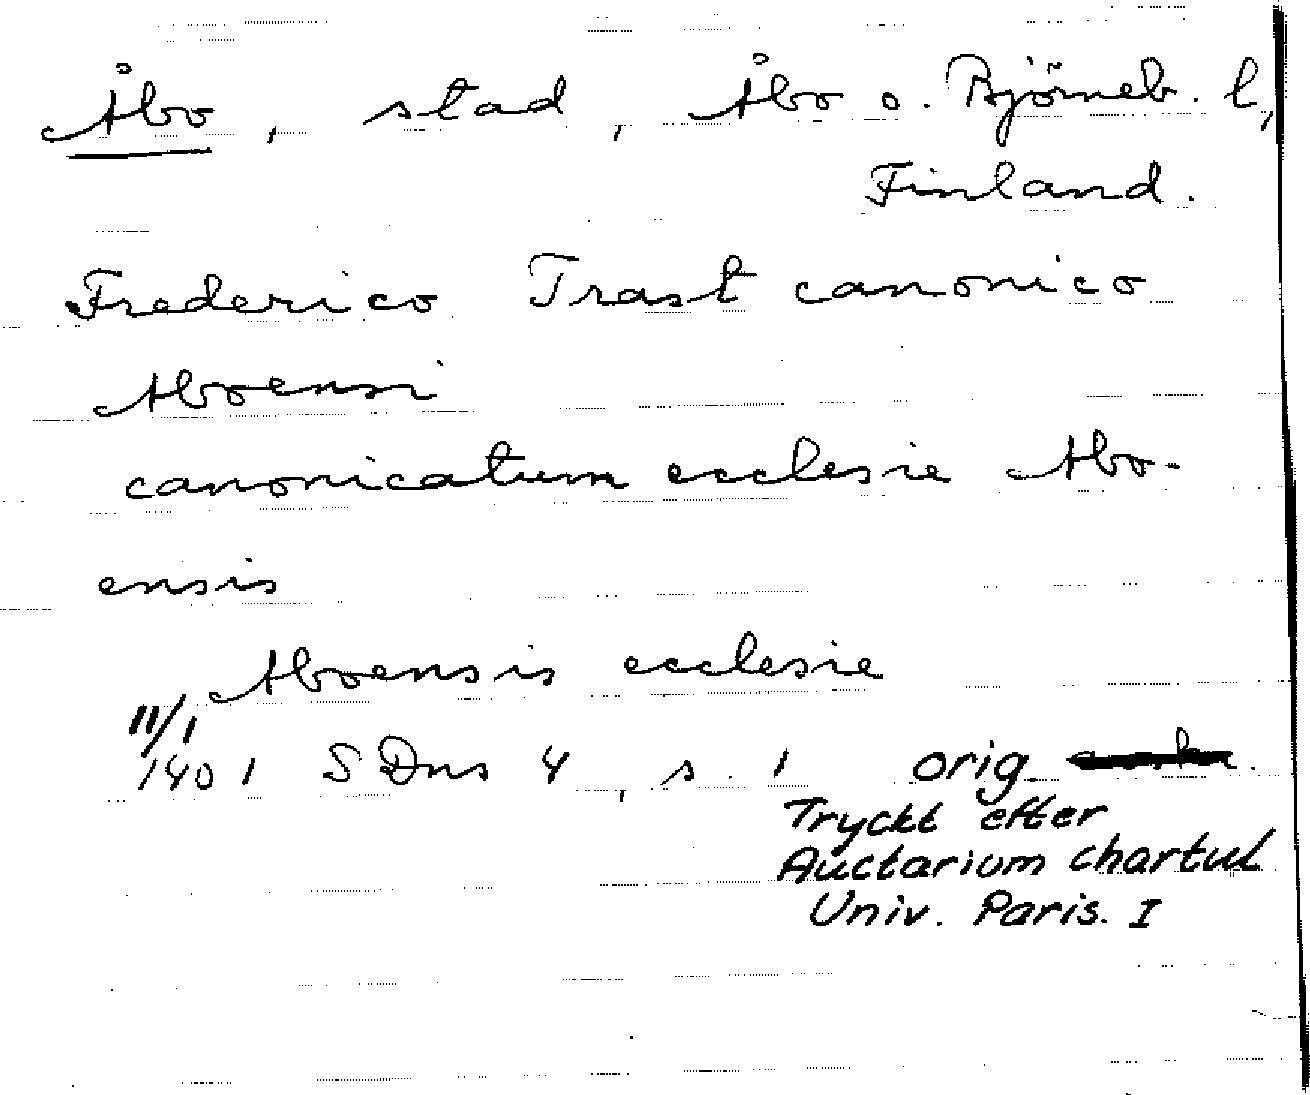 Åbo, stad, Åbo o. Björneb. l,
Finland.
Frederico Trast canonico
Aboensi
canonicatum ecclesie Abo-
ensis
Aboensis ecclesie
11/1
1401 SDns 4, s. 1 orig.
Tryckt efter
Auctarium chartul
Univ. Paris. I